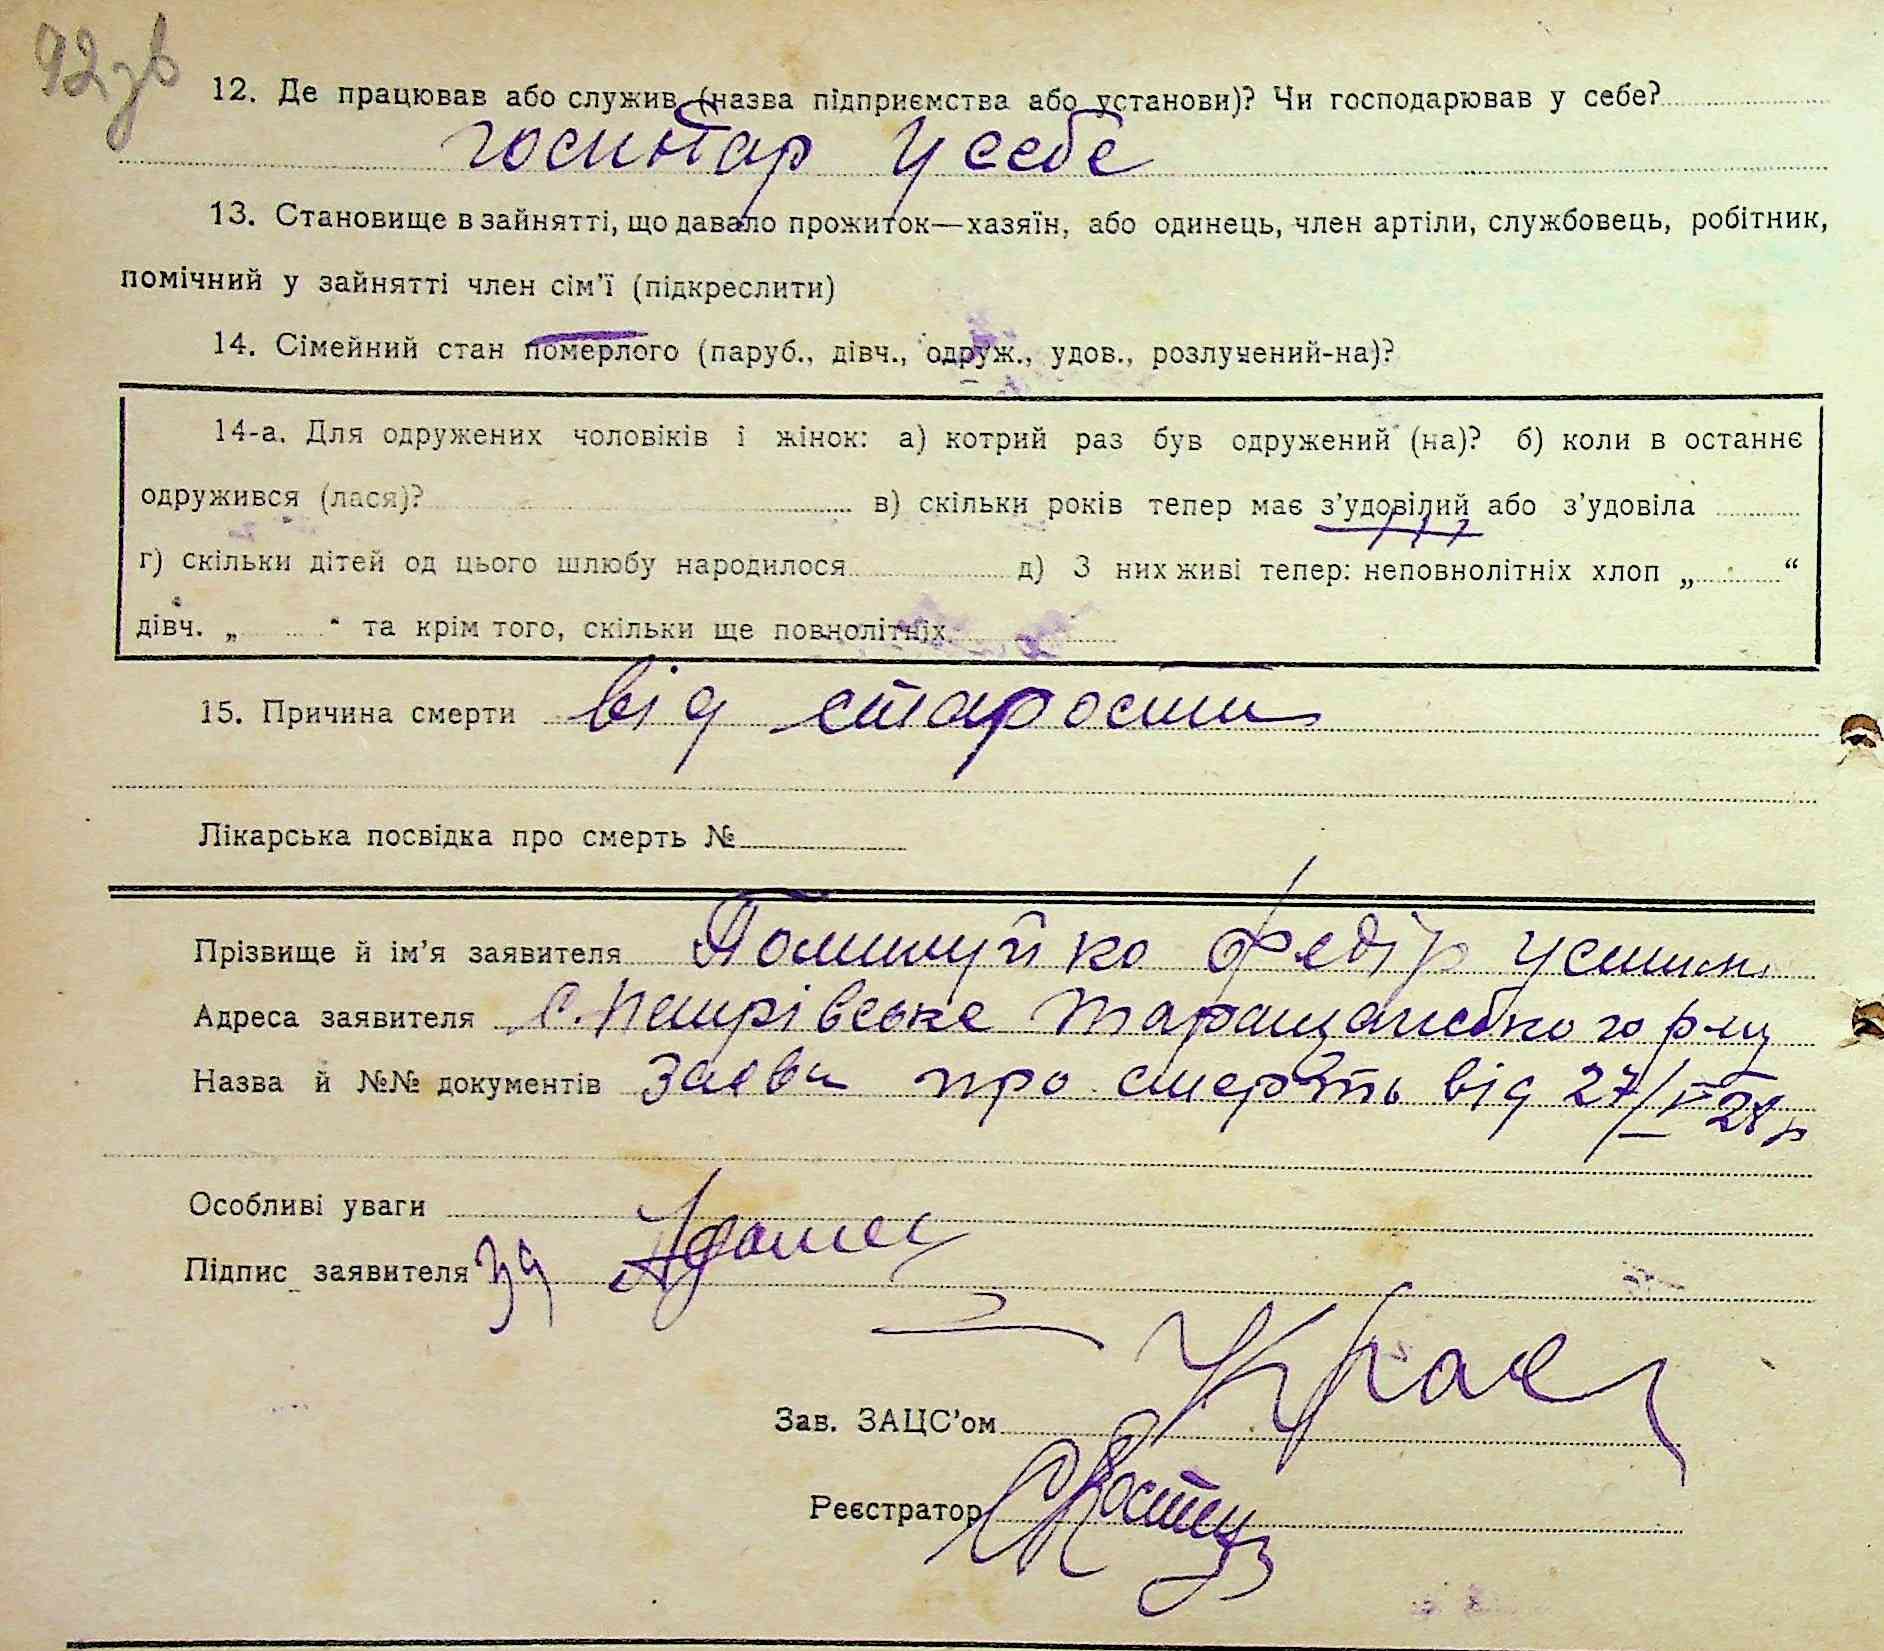 92 зв
12. Де працював або служив (назва підприємства або установи)? Чи господарював у себе?
у себе
13. Становище в зайнятті, що давало прожиток—хазяїн, або одинець, член артіли, службовець, робітник,
помічний у зайнятті член сім'ї (підкреслити)
14. Сімейний стан померлого (паруб., дівч., одруж., удов., розлучений-на)?
14-а. Для одружених чоловіків і жінок: а) котрий раз був одружений (на)? б) коли в останнє
одружився (лася)? в) скільки років тепер має з'удовілий або з'удовіла
г) скільки дітей од цього шлюбу народилося д) З них живі тепер: неповнолітніх хлоп „ “
дівч. „ “ та крім того, скільки ще повнолітніх
15. Причина смерти від старости
Лікарська посвідка про смерть №
Прізвище й ім'я заявителя Федір
Адреса заявителя с. Петрівське Таращанського р-ну
Назва й №№ документів Заява про смерть від 27/V 28 р
Особливі уваги
Підпис заявителя за
Зав. ЗАЦС'ом
Реєстратор